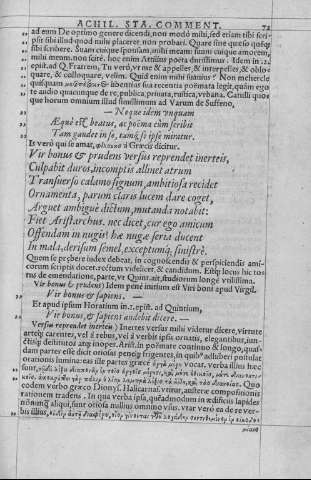 ACHIL. STA. COMMENT. 72
ad eum De optimo genere dicendi, non modo mihi, sed etiam tibi scri-
psi: sibi illud quod mihi placeret, non probari. Quare sine quæso quosq;
sibi scribere. Suam cuique sponsam, mihi meam: suum cuique amorem,
mihi meum. non scitè. hoc enim Attilius poeta durissimus. Idem in
epist. ad Q. Fratrem, Tu verò, vt me & appelles, & interpelles, & oblo-
quare, & colloquare, velim. Quid enim mihi suauius? Non mehercle
quisquam libentius sua recentia poemata legit, quàm ego
te audio quacunque de re, publica, priuata, rustica, vrbana. Catulli quoq
que horum omnium illud simillimum ad Varum de Suffeno,
— Neque idem vnquam
Æquè est beatus, ac poema cùm scribit
Tam gaudet in se, tamq; se ipse miratur.
Is verò qui se amat, φίλαυτος à Græcis dicitur.
Vir bonus & prudens versus reprendet inerteis,
Culpabit duros, incomptis allinet atrum
Transuerso calamo signum, ambitiosa recidet
Ornamenta, parum claris lucem dare coget,
Arguet ambiguè dictum, mutanda notabit:
Fiet Aristarchus. nec dicet, cur ego amicum
Offendam in nugis? hæ nugæ seria ducent
In mala, derisum semel, exceptumq; sinistrè.
Quem se præbere iudex debeat, in cognoscendis & perspiciendis ami-
corum scriptis docet. rectum videlicet, & candidum. Estq; locus hic to-
tus de emendatione, parte, vt Quint. ait, studiorum longè vtilissima.
Vir bonus & prudens) Idem penè initium est Viri boni apud Virgil.
Vir bonus & sapiens. —
Et apud ipsum Horatium in 1. epist. ad Quintium,
Vir bonus, & sapiens audebit dicere. —
Versus reprendet inerteis) Inertes versus mihi videtur dicere, virtute
arteq; carentes, vel à rebus, vel à verbis ipsis ornatis, elegantibus, iun-
ctisq; destitutos atq; inopes. Arist. in poëmate continuo & longo, quas-
dam partes esse dicit otiosas
orationis lumina: eas ille partes græcè ἀργὰ μέρη vocat. verba illius hæc
sunt,
Quo
eodem verbo græco Dionys. Halicarnas. vtitur, austeræ compositionis
rationem tradens. In qua verba ipsa, quemadmodum in ædificiis lapides
nonnunq; aliqui, sunt otiosa nullius omnino vsus. vtar verò ea de re ver-
bis illius,